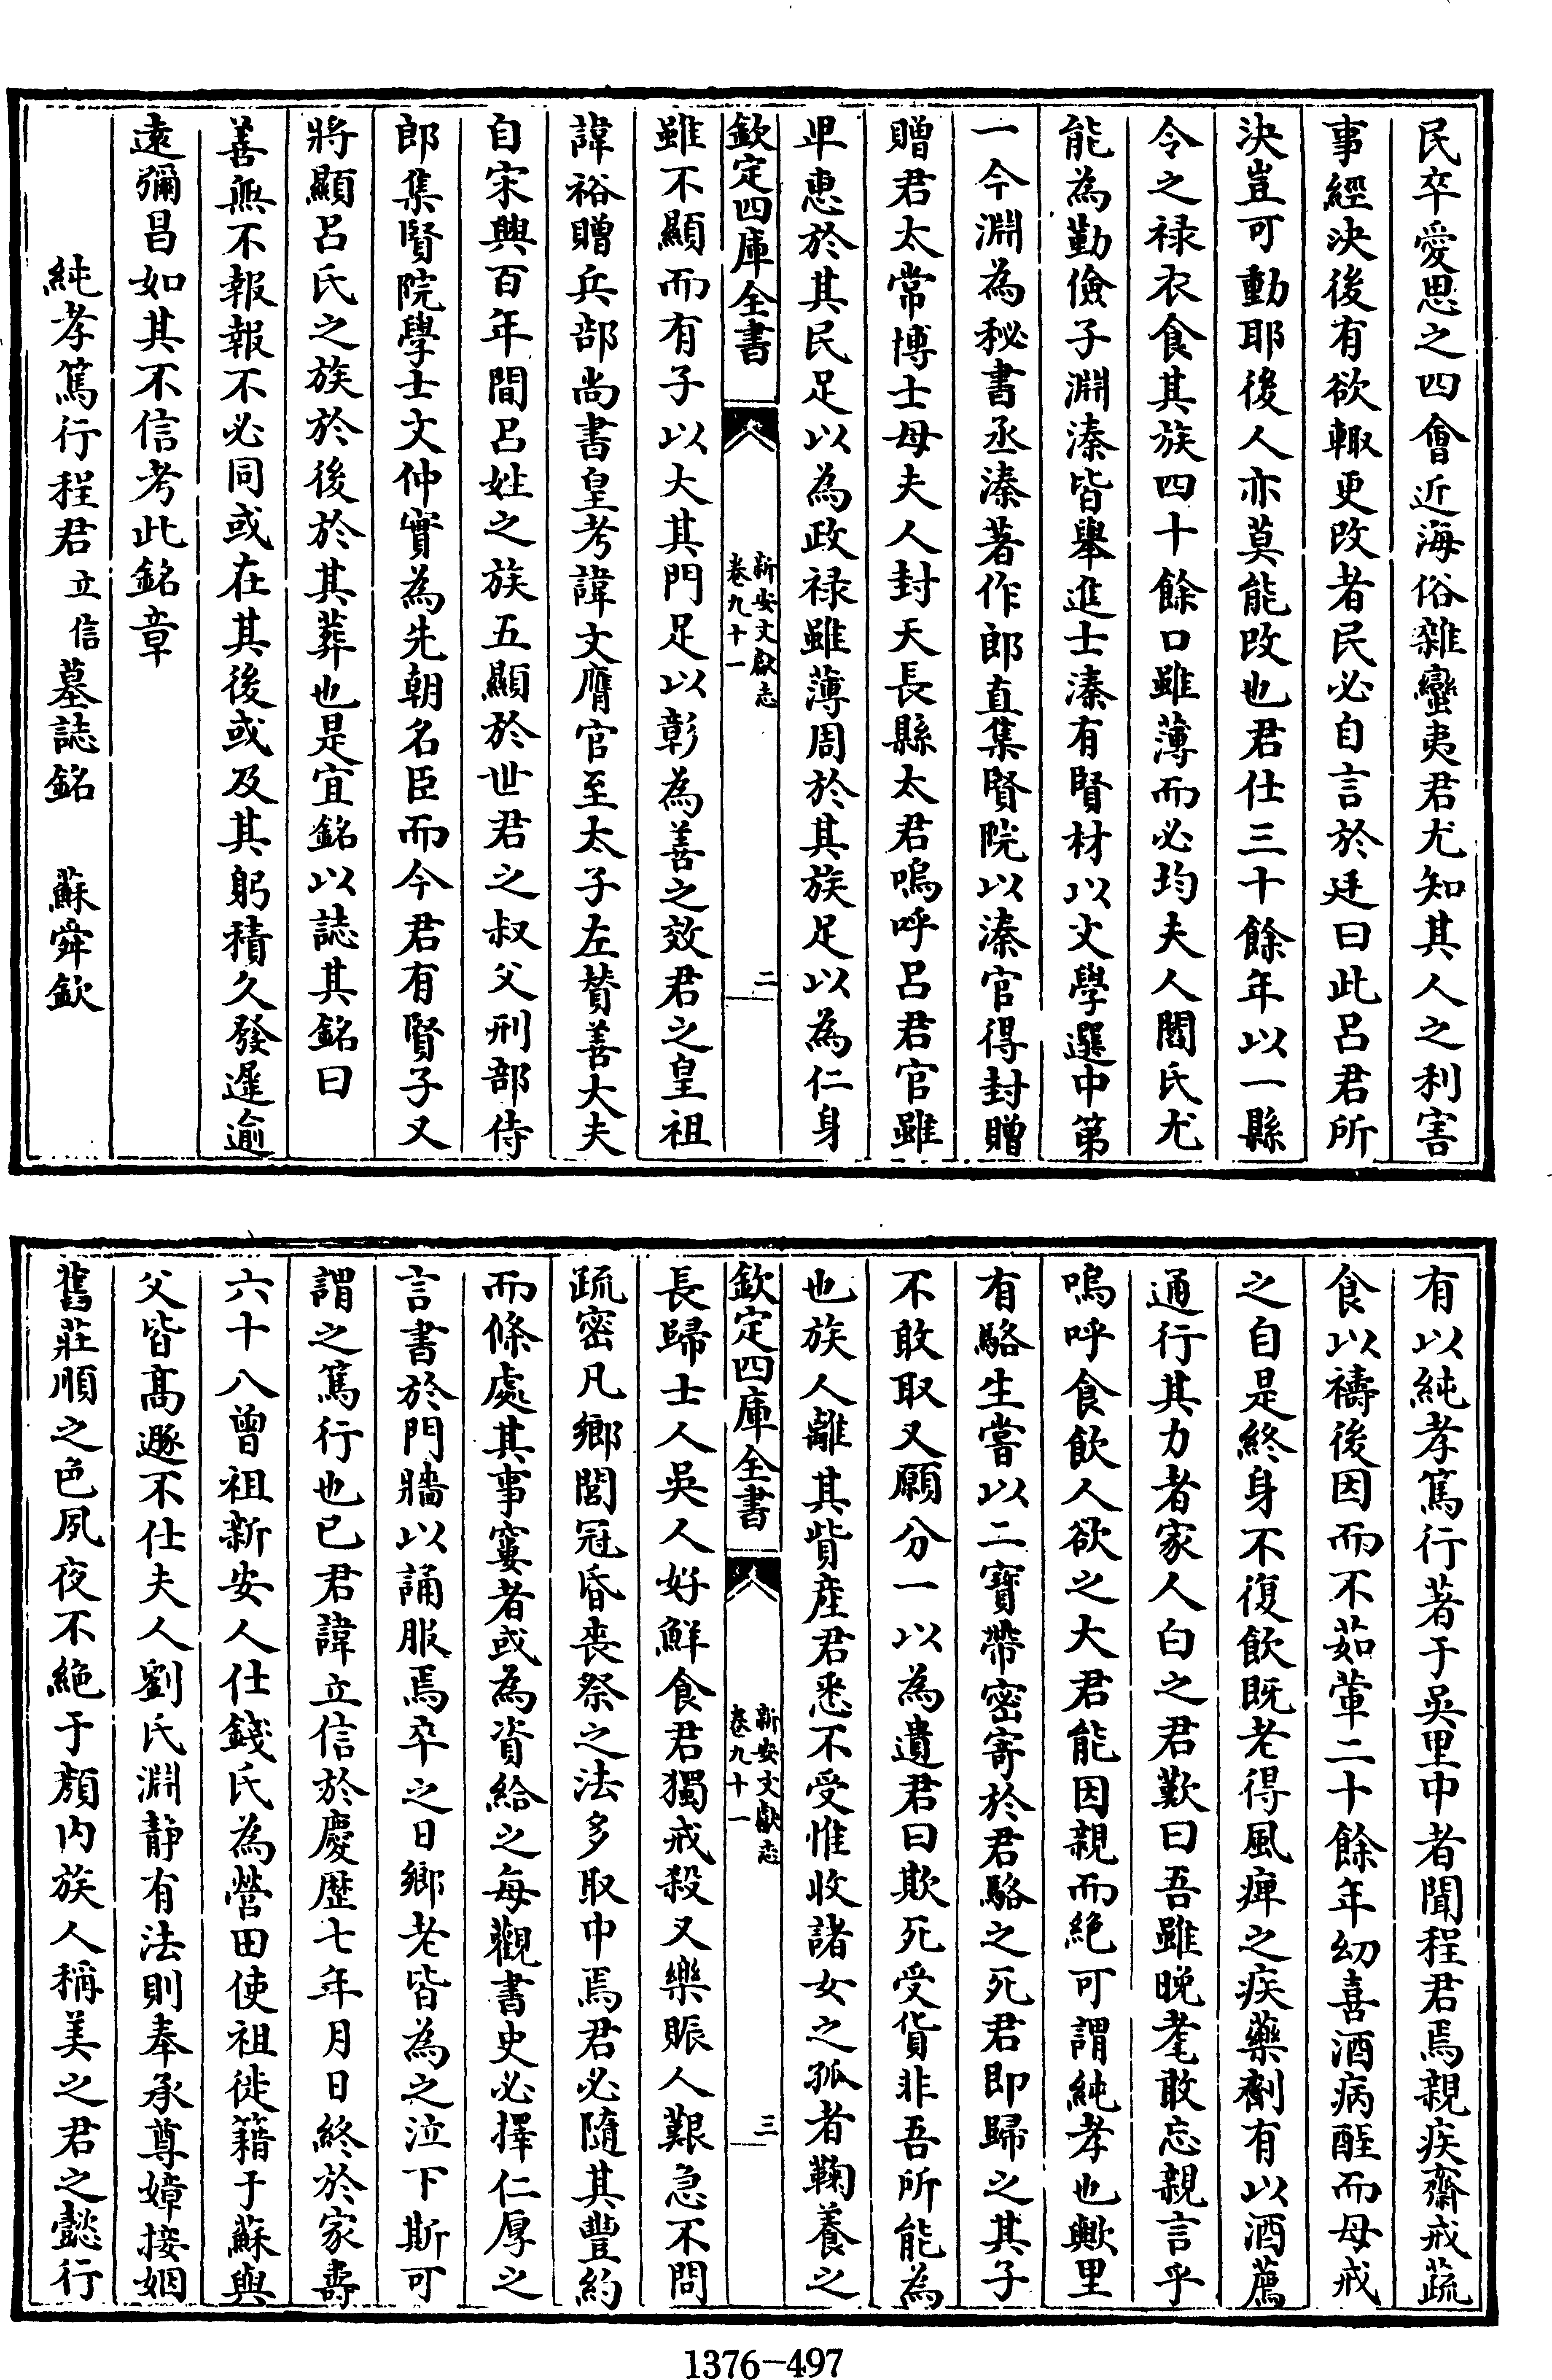 民卒愛思之四會近海俗雜蠻夷君尤知其人之利害
事經決後有欲輙更改者民必自言於廷曰此呂君所
決豈可動耶後人亦莫能改也君仕三十餘年以一縣
令之禄衣食其族四十餘口雖薄而必均夫人閻氏尤
能為勤儉子淵溱皆舉進士溱有賢材以文學選中第
一今淵為秘書丞溱著作郎直集賢院以溱官得封贈
贈君太常博士母夫人封天長縣太君嗚呼呂君官雖
卑惠於其民足以為政禄雖薄周於其族足以為仁身
欽定四庫全書
新安文獻志
卷九十一
二
雖不顯而有子以大其門足以彰為善之效君之皇祖
諱裕贈兵部尚書皇考諱文膺官至太子左賛善大夫
自宋興百年間呂姓之族五顯於世君之叔父刑部侍
郎集賢院學士文仲實為先朝名臣而今君有賢子又
將顯呂氏之族於後於其葬也是宜銘以誌其銘曰
善無不報報不必同或在其後或及其躬積久發遲逾
遠彌昌如其不信考此銘章
純孝篤行程君立信墓誌銘 蘇舜欽
有以純孝篤行著于吳里中者聞程君焉親疾齋戒蔬
食以禱後因而不茹葷二十餘年幼喜酒病酲而母戒
之自是終身不復飲既老得風痺之疾藥劑有以酒薦
通行其力者家人白之君歎曰吾雖晚耄敢忘親言乎
嗚呼食飲人欲之大君能因親而絶可謂純孝也歟里
有駱生嘗以二寳帶密寄於君駱之死君即歸之其子
不敢取又願分一以為遺君曰欺死受貨非吾所能為
也族人離其貲産君悉不受惟收諸女之孤者鞠養之
欽定四庫全書
新安文獻志
卷九十一
三
長歸士人吳人好鮮食君獨戒殺又樂賑人艱急不問
疏密凡鄉閭冠昏喪祭之法多取中焉君必隨其豐約
而條處其事窶者或為資給之每觀書史必擇仁厚之
言書於門牆以誦服焉卒之日鄉老皆為之泣下斯可
謂之篤行也已君諱立信於慶歴七年月日終於家壽
六十八曾祖新安人仕錢氏為營田使祖徙籍于蘇與
父皆髙遯不仕夫人劉氏淵静有法則奉承尊嫜接姻
舊莊順之色夙夜不絶于顔内族人稱美之君之懿行
1376-497